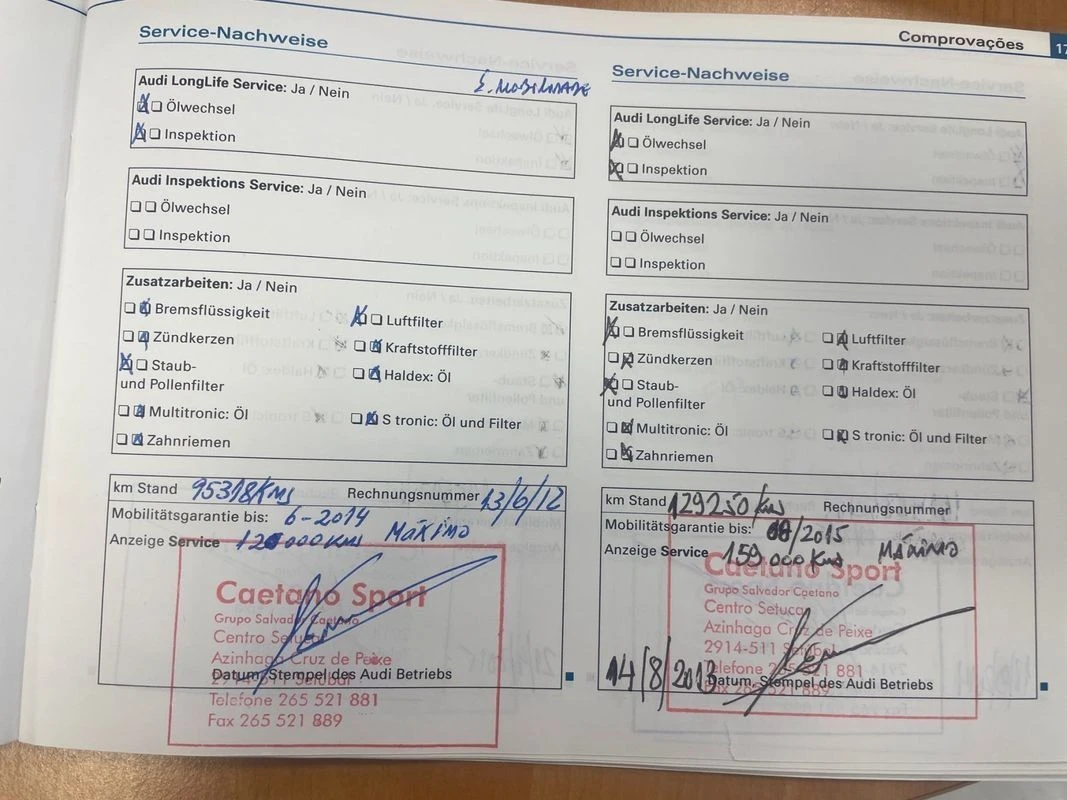 Comprovações
17
Service-Nachweise
Audi LongLife Service: Ja / Nein
Ölwechsel
Inspektion
Audi Inspektions Service: Ja / Nein
Ölwechsel
Inspektion
Zusatzarbeiten: Ja / Nein
Bremsflüssigkeit
Luftfilter
Zündkerzen
Kraftstofffilter
Staub-
und Pollenfilter
Haldex: Öl
Multitronic: Öl
S tronic: Öl und Filter
Zahnriemen
km Stand 95318 Kms Rechnungsnummer 13/6/12
Mobilitätsgarantie bis: 6-2014
Anzeige Service 125000 Kms MÁXIMO
Caetano Sport
Grupo Salvador Caetano
Centro Setucar
Azinhaga Cruz de Peixe
2914-511 Setúbal
Datum, Stempel des Audi Betriebs
Telefone 265 521 881
Fax 265 521 889
Service-Nachweise
Audi LongLife Service: Ja / Nein
Ölwechsel
Inspektion
Audi Inspektions Service: Ja / Nein
Ölwechsel
Inspektion
Zusatzarbeiten: Ja / Nein
Bremsflüssigkeit
Luftfilter
Zündkerzen
Kraftstofffilter
Staub-
und Pollenfilter
Haldex: Öl
Multitronic: Öl
S tronic: Öl und Filter
Zahnriemen
km Stand 129250 kms Rechnungsnummer
Mobilitätsgarantie bis: 08/2015
Anzeige Service 159 000 Kms MÁXIMO
Caetano Sport
Grupo Salvador Caetano
Centro Setucar
Azinhaga Cruz de Peixe
2914-511 Setúbal
Telefone 265 521 881
14/8/2013 Datum, Stempel des Audi Betriebs
Fax 265 521 889